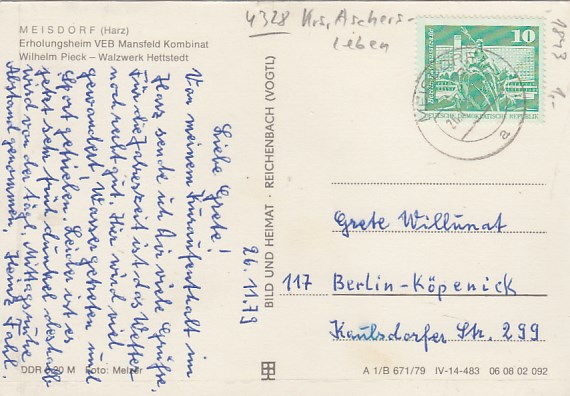 MEISDORF (Harz)
Erholungsheim VEB Mansfeld Kombinat
Wilhelm Pieck – Walzwerk Hettstedt
4328 Krs. Aschers-
leben
1843
1,-
10
DEUTSCHE DEMOKRATISCHE REPUBLIK
MEISDORF
a
26. 11. 79
Liebe Grete!
Von meinem Kuraufenthalt im
Harz sende ich Dir viele Grüße.
Für die Jahreszeit ist das Wetter
noch recht gut. Hier wird viel
gewandert, Wassergetreten und
Sport getrieben. Leider ist es
jetzt sehr früh dunkel, deshalb
wird von der tägl. Mittagsruhe
Abstand genommen. Heinz Fahl.
BILD UND HEIMAT · REICHENBACH (VOGTL)
Grete Willunat
117 Berlin-Köpenick
Kaulsdorfer Str. 299
DDR 0,20 M Foto: Melzer
A 1/B 671/79 IV-14-483 06 08 02 092